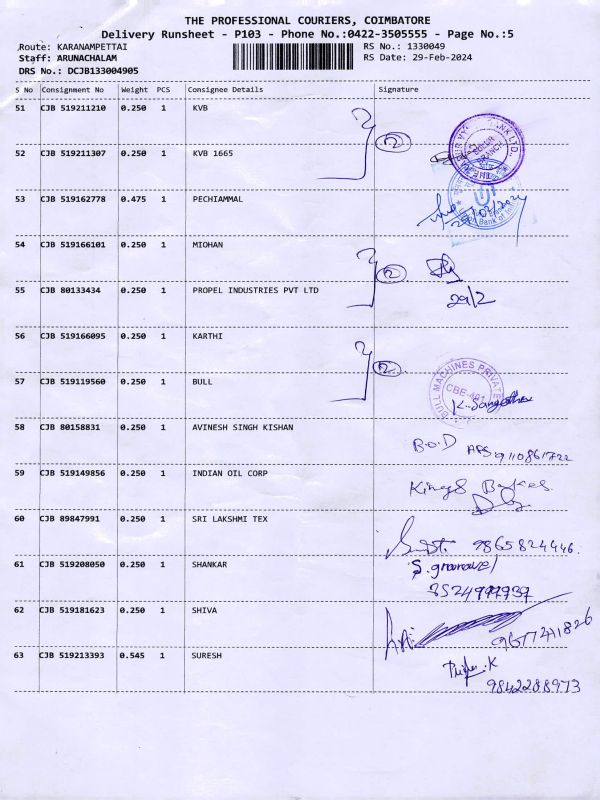 THE PROFESSIONAL COURIERS, COIMBATORE
Delivery Runsheet - P103 - Phone No.:0422-3505555 - Page No.:5
Route: KARANAMPETTAI RS No.: 1330049
Staff: ARUNACHALAM RS Date: 29-Feb-2024
DRS No.: DCJB133004905
S No Consignment No Weight PCS Consignee Details Signature
51 CJB 519211210 0.250 1 KVB
2
52 CJB 519211307 0.250 1 KVB 1665
53 CJB 519162778 0.475 1 PECHIAMMAL
54 CJB 519166101 0.250 1 MIOHAN
2
55 CJB 80133434 0.250 1 PROPEL INDUSTRIES PVT LTD 29/2
56 CJB 519166095 0.250 1 KARTHI
2
57 CJB 519119560 0.250 1 BULL
BULL MACHINES PRIVATE
58 CJB 80158831 0.250 1 AVINESH SINGH KISHAN
B.O.D
59 CJB 519149856 0.250 1 INDIAN OIL CORP
Kings
60 CJB 89847991 0.250 1 SRI LAKSHMI TEX
9865824446
61 CJB 519208050 0.250 1 SHANKAR
62 CJB 519181623 0.250 1 SHIVA
9677411826
63 CJB 519213393 0.545 1 SURESH
9842288973